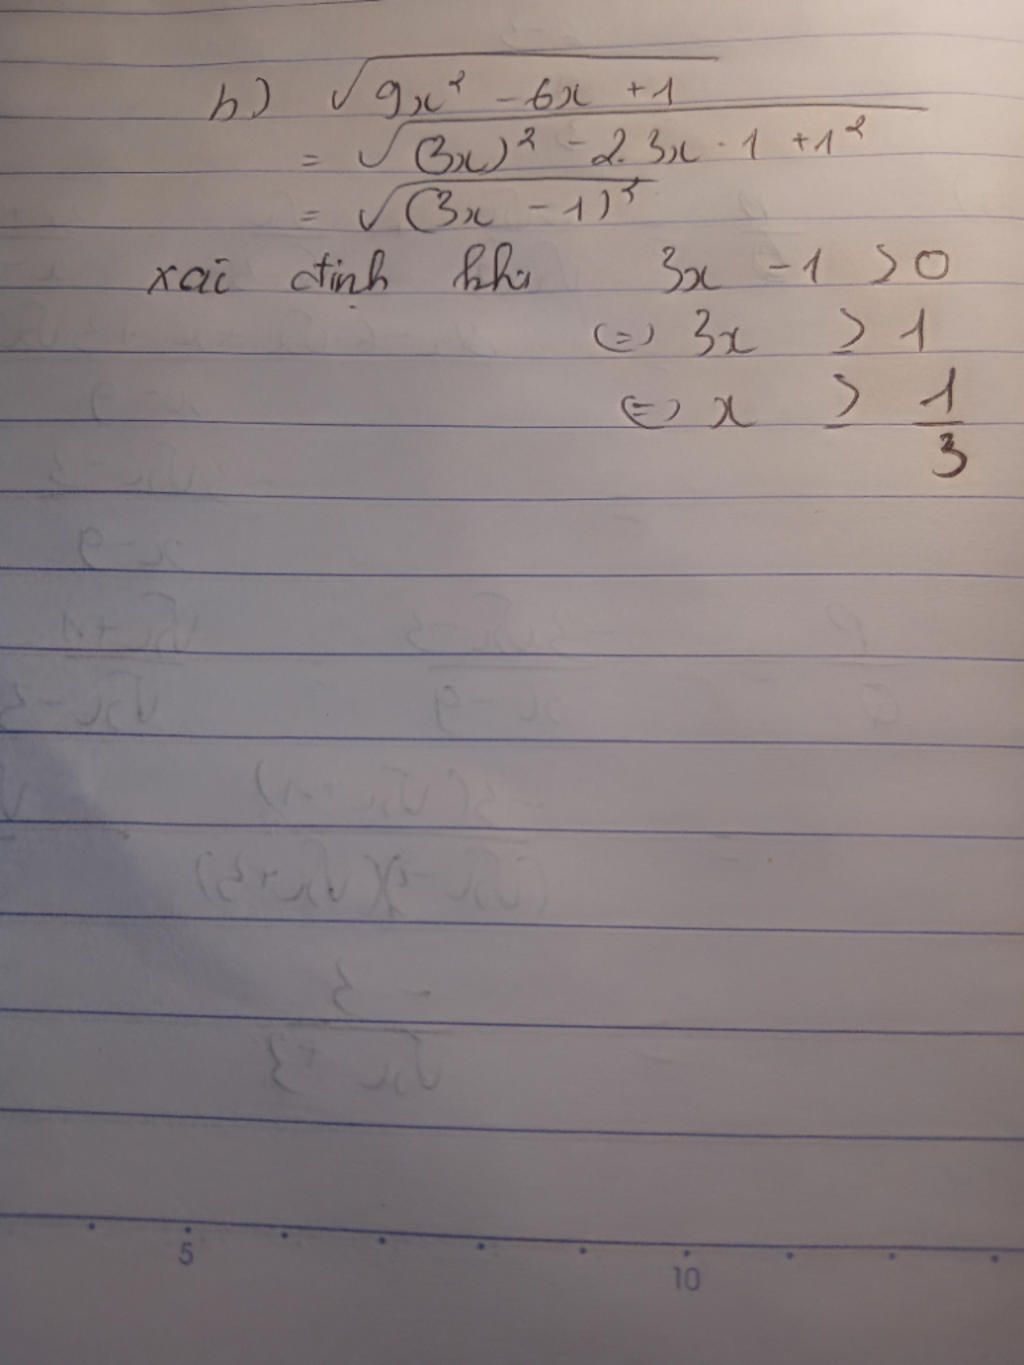 b) √(9x² - 6x + 1)
= √((3x)² - 2.3x . 1 + 1²)
= √((3x - 1)²)
xác định khi 3x - 1 > 0
(=) 3x ≥ 1
(=) x ≥ 1/3
x - 9
5
10